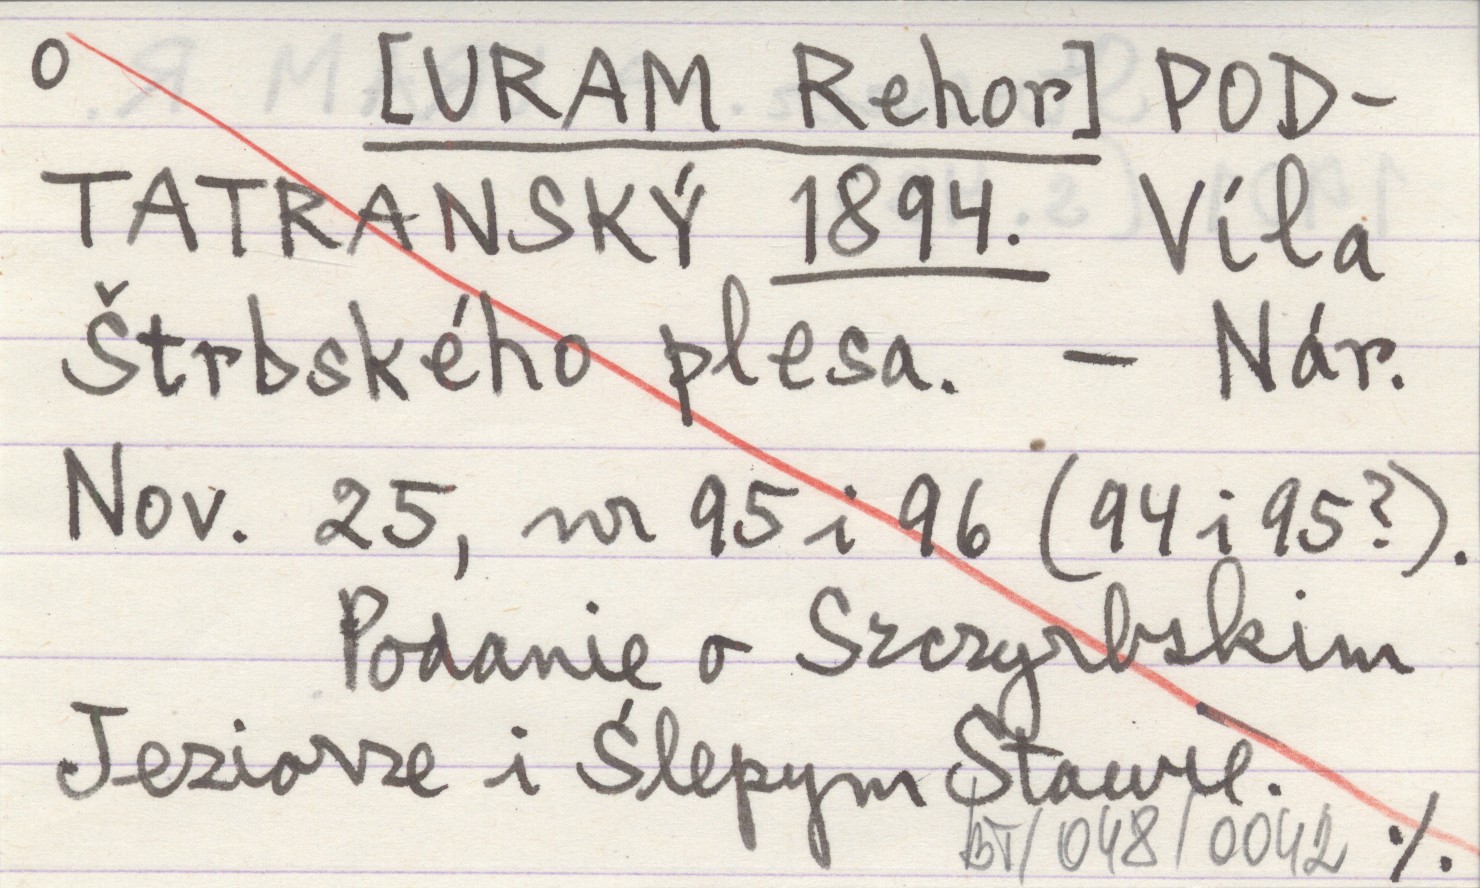 o [URAM Rehor] POD-
TATRANSKÝ 1894. Víla
Štrbského plesa. — Nár.
Nov. 25, nr 95 i 96 (94 i 95?).
Podanie o Szczyrbskim
Jeziorze i Ślepym Stawie.
BT/048/0042 ·/.